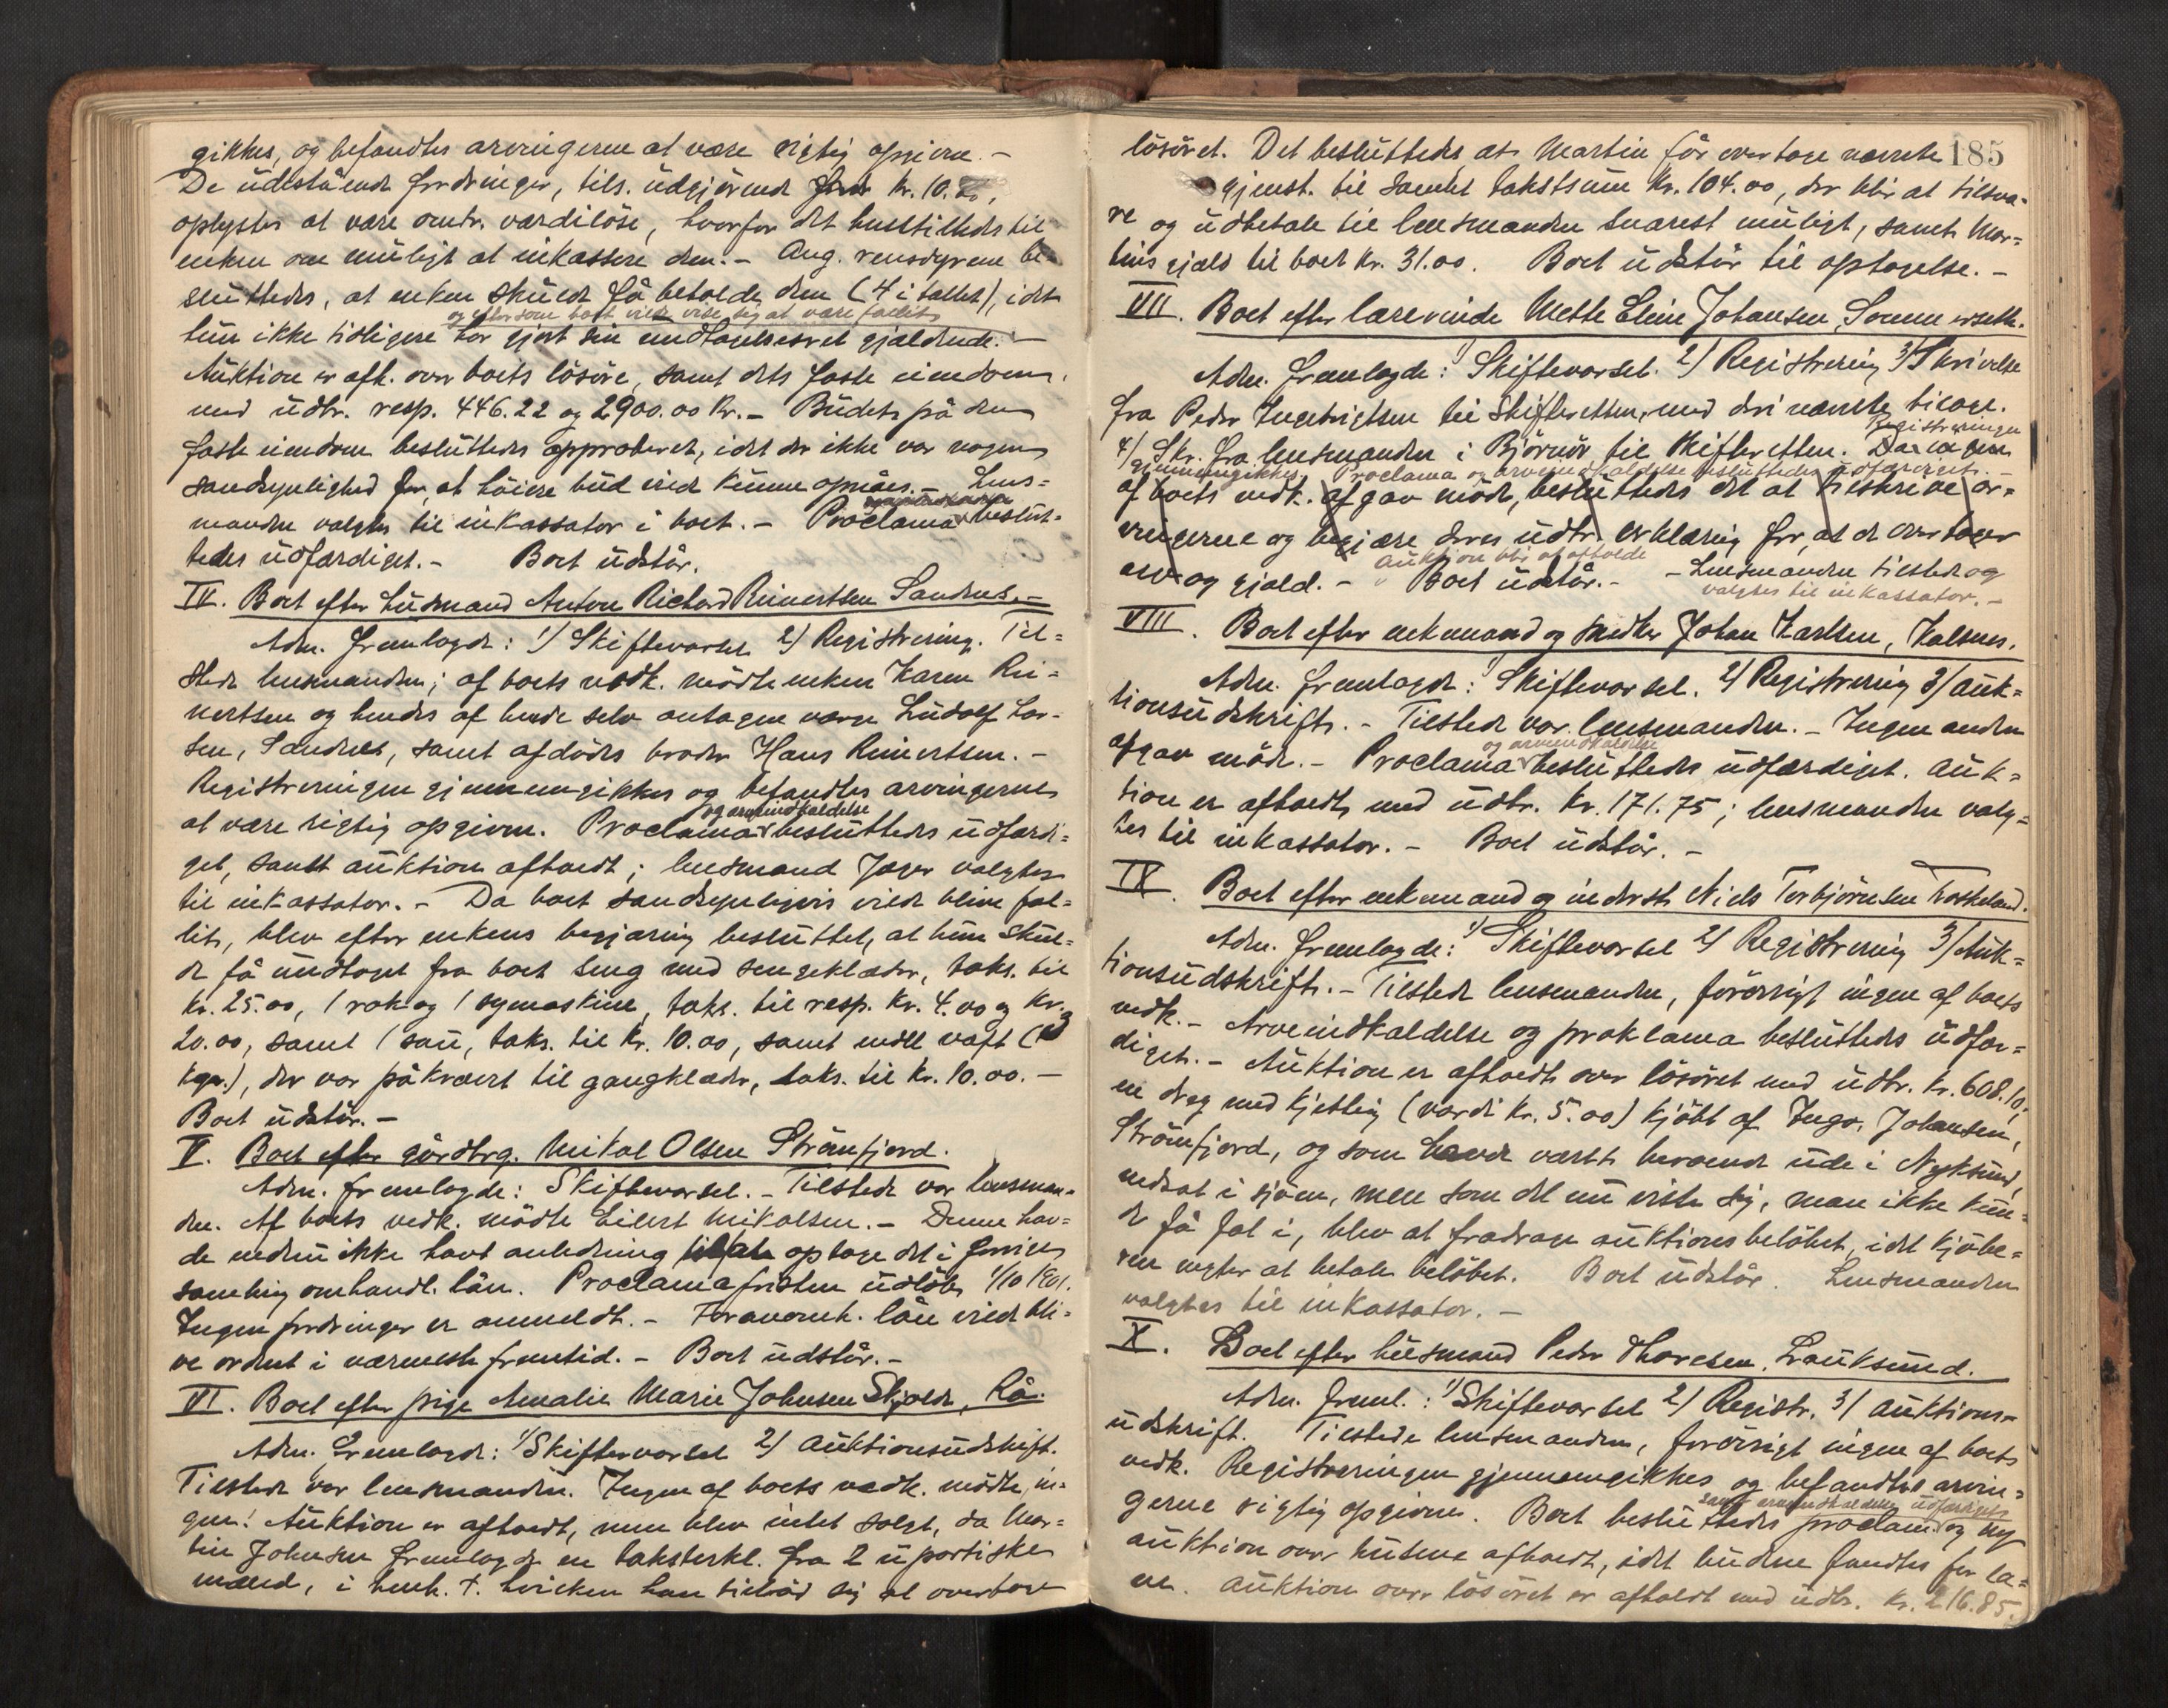 gikkes, og befandtes arvingerne at være rigtig opgivne. -
De udestående fordringer, tils. udgjörende kr. 10.
oplystes at være omtr. værdilöse, hvorfor det henstilledes til
enken om muligt at inkassere dem. - Ang. rensdyrene be-
sluttedes, at enken skulde få beholde dem (4 i tallet), idet
og eftersom boet vilde vise sig at være fallit
hun ikke tidligere har gjort sin undtagelsesret gjældende. -
Auktion er afh. over boets lösöre, samt dets faste eiendom,
med udbr. resp. 446.22 og 2900.00 kr. - Budet på den
faste eiendom besluttedes approberet, idet der ikke var nogen
sandsynlighed for, at höiere bud vilde kunne opnåes. - Lens=
manden valgtes til inkassator i boet. - Proclama beslut=
tedes udfærdiget. - Boet udstår.
IV. Boet efter husmand Anton Richard Reinertsen Sandnes. -
Adm. fremlagde: 1) Skiftevarsel 2) Registrering. Til=
stede lensmanden; af boets vedk. mödte enken Karen Rei=
nertsen og hendes af hende selv antagne værge Ludolf Lar-
sen, Sandnes, samt afdödes broder Hans Reinertsen. -
Registreringen gjennemgikkes og befandtes arvingerne
og arveindkaldelse
at være rigtig opgivne. Proclama besluttedes udfærdi=
get, samt auktion afholdt; lensmand Jæger valgtes
til inkassator. - Da boet sandsynligvis vilde blive fal=
lit, blev efter enkens begjæring besluttet, at hun skul=
de få undtaget fra boet seng med sengeklæder, taks. til
kr. 25.00, 1 rok og 1 symaskine, taks. til resp. kr. 4.00 og kr.
20.00, samt 1 sau, taks. til kr. 10.00, samt uldt vaft (3
kgr.), der var påkrævet til gangklæder, taks. til kr. 10.00. -
Boet udstår. -
V. Boet efter gårdbrg. Mikal Olsen Strömfjord.
Adm. fremlagde: Skiftevarsel. - Tilstede var lensman-
den. Af boets vedk. mödte Eilert Mikalsen. - Denne hav=
de endnu ikke havt anledning til at optage det i forrige
samling omhandl. lån. Proclamafristen udlöb 1/10 1901.
Ingen fordringer er anmeldt. - Foranomh. lån vilde bli=
ve ordnet i nærmeste fremtid. - Boet udstår. -
VI. Boet efter pige Amalie Marie Johnsen Skjolde, Rå.
Adm. fremlagde: 1) Skiftevarsel 2) Auktionsudskrift.
Tilstede var lensmanden. Ingen af boets vedk. mödte, in-
gen! Auktion er afholdt, men blev intet solgt, da Mar=
tin Johnsen fremlagde en taksterkl. fra 2 upartiske
mænd, i henh. t. hvilken han tilböd sig at overtage
185
lösöret. Det besluttedes at Martin får overtage nævnte
gjenst. til samlet takstsum kr. 104.00, der blir at tilsva-
re og udbetale til lensmanden snarest muligt, samt Mar=
tins gjæld til boet kr. 31.00. Boet udstår til optagelse. -
VII. Boet efter lærerinde Mette Eline Johansen, Sommersæth.
Adm. fremlagde: 1) Skiftevarsel. 2) Registrering 3) Skrivelse
fra Peder Ingebrigtsen til skifteretten, med deri nævnte bilage.
Registreringen
4) Skr. fra lensmanden i Björnör til skifteretten. Da ingen
gjennemgikkes. Proclama og arveindkaldelse besluttedes udfærdiget. -
af boets vedk. afgav möde, besluttedes det at tilskrive ar=
vingerne og begjære deres udtr. erklæring for, at de overtager
Auktion blir at afholde
arv og gjæld. - Boet udstår. - - Lensmanden tilstede og
valgtes til inkassator. -
VIII. Boet efter enkemand og smed Johan Karlsen, Kalsnes.
Adm. fremlagde: 1) Skiftevarsel. 2) Registrering 3) Auk=
tionsudskrift. - Tilstede var lensmanden. - Ingen anden
og arveindkaldelse
afgav möde. - Proclama besluttedes udfærdiget. Auk=
tion er afholdt med udbr. kr. 171.75; lensmanden valg=
tes til inkassator. - Boet udstår. -
IX. Boet efter enkemand og inderst Niels Torbjörnsen Forkeland.
Adm. fremlagde: 1) Skiftevarsel 2) Registrering 3) Auk=
tionsudskrift. - Tilstede lensmanden, forövrigt ingen af boets
vedk. - Arveindkaldelse og proklama besluttedes udfær=
diget. - Auktion er afholdt over lösöret med udbr. kr. 608.10;
en dreg med kjetting (værdi kr. 5.00) kjöbt af Ingv. Johansen,
Strömfjord, og som havde været beroende ude i Nyksund,
nedsat i sjöen, men som det nu viste sig, man ikke kun=
de få fat i, blev at fradrage auktionsbelöbet, idet kjöbe=
ren negter at betale belöbet. Boet udstår. Lensmanden
valgtes til inkassator. -
X. Boet efter husmand Peder Thoresen, Lauksund.
Adm. freml.: 1) Skiftevarsel 2) Registr. 3) Auktions-
udskrift. Tilstede lensmanden, forövrigt ingen af boets
vedk. Registreringen gjennemgikkes og befandtes arvin=
samt arveindkaldelse udfærdiget
gerne rigtig opgivne. Boet besluttedes proclama og ny
auktion over husene afholdt, idet budene fandtes for la=
ve. Auktion over lösöret er afholdt med udbr. kr. 216.85.